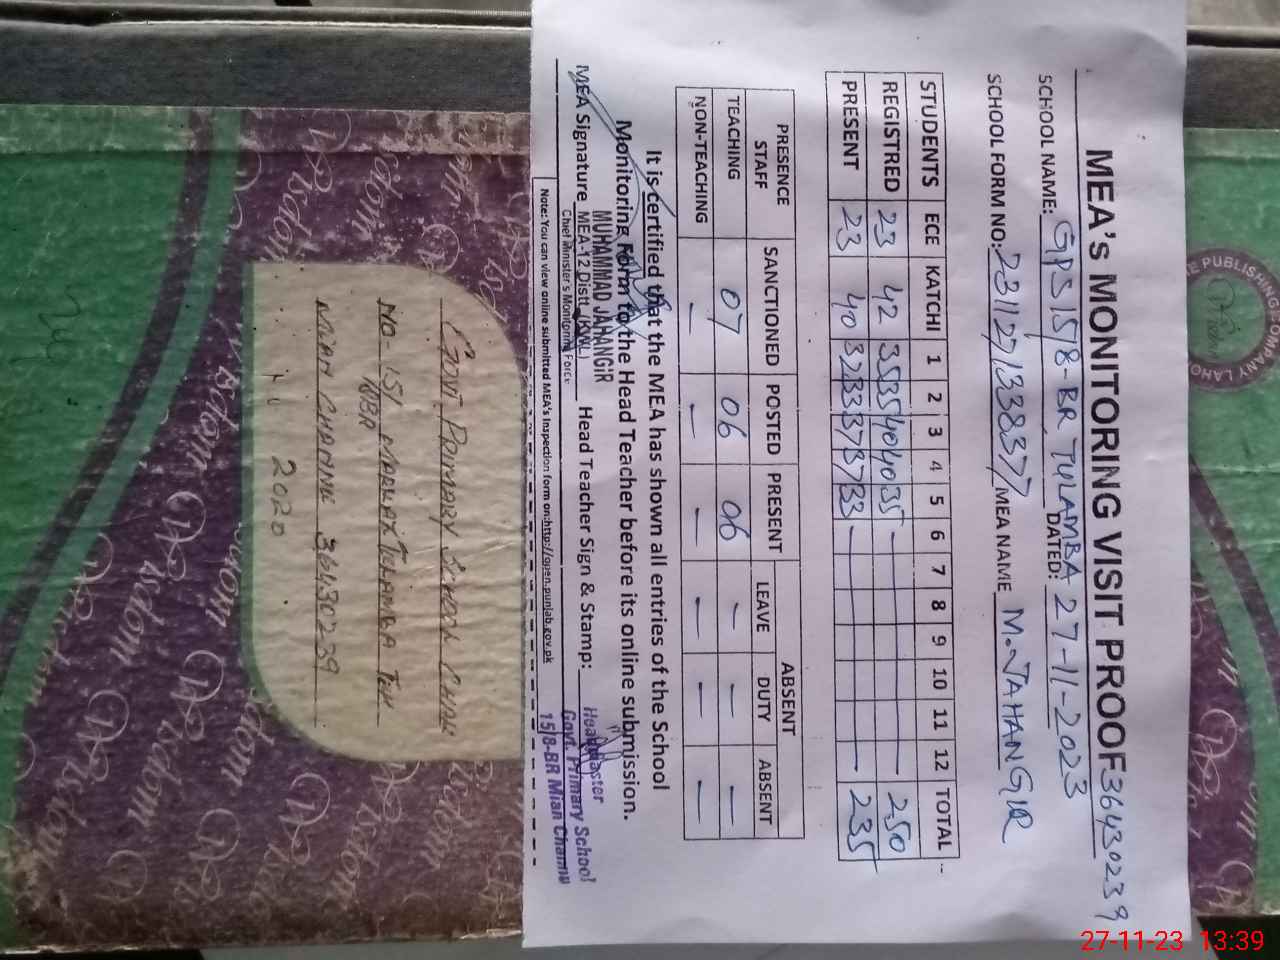 MEA's MONITORING VISIT PROOF 36430239
SCHOOL NAME: GPS 15/8-BR TULAMBA DATED: 27-11-2023
SCHOOL FORM NO: 231127133837 MEA NAME M. JAHANGIR
STUDENTS ECE KATCHI 1 2 3 4 5 6 7 8 9 10 11 12 TOTAL
REGISTRED 23 42 35 35 40 40 35 — — 250
PRESENT 23 40 32 33 37 37 33 — — 235
PRESENCE STAFF SANCTIONED POSTED PRESENT ABSENT
LEAVE DUTY ABSENT
TEACHING 07 06 06 — — —
NON-TEACHING — — — — — —
It is certified that the MEA has shown all entries of the School
Monitoring Form to the Head Teacher before its online submission.
MUHAMMAD JAHANGIR
MEA Signature MEA-12 Distt. KWL Head Teacher Sign & Stamp:
Chief Minister's Monitoring Force
Headmaster
Govt. Primary School
15/8-BR Mian Channu
Note: You can view online submitted MEA's Inspection form on:http://open.punjab.gov.pk
GOVT PRIMARY SCHOOL CHAK
NO- 15/8BR MARKAZ TULAMBA TEH
MIAN CHANNU 36430239
2020
Wisdom
PUBLISHING
LAHORE
27-11-23 13:39